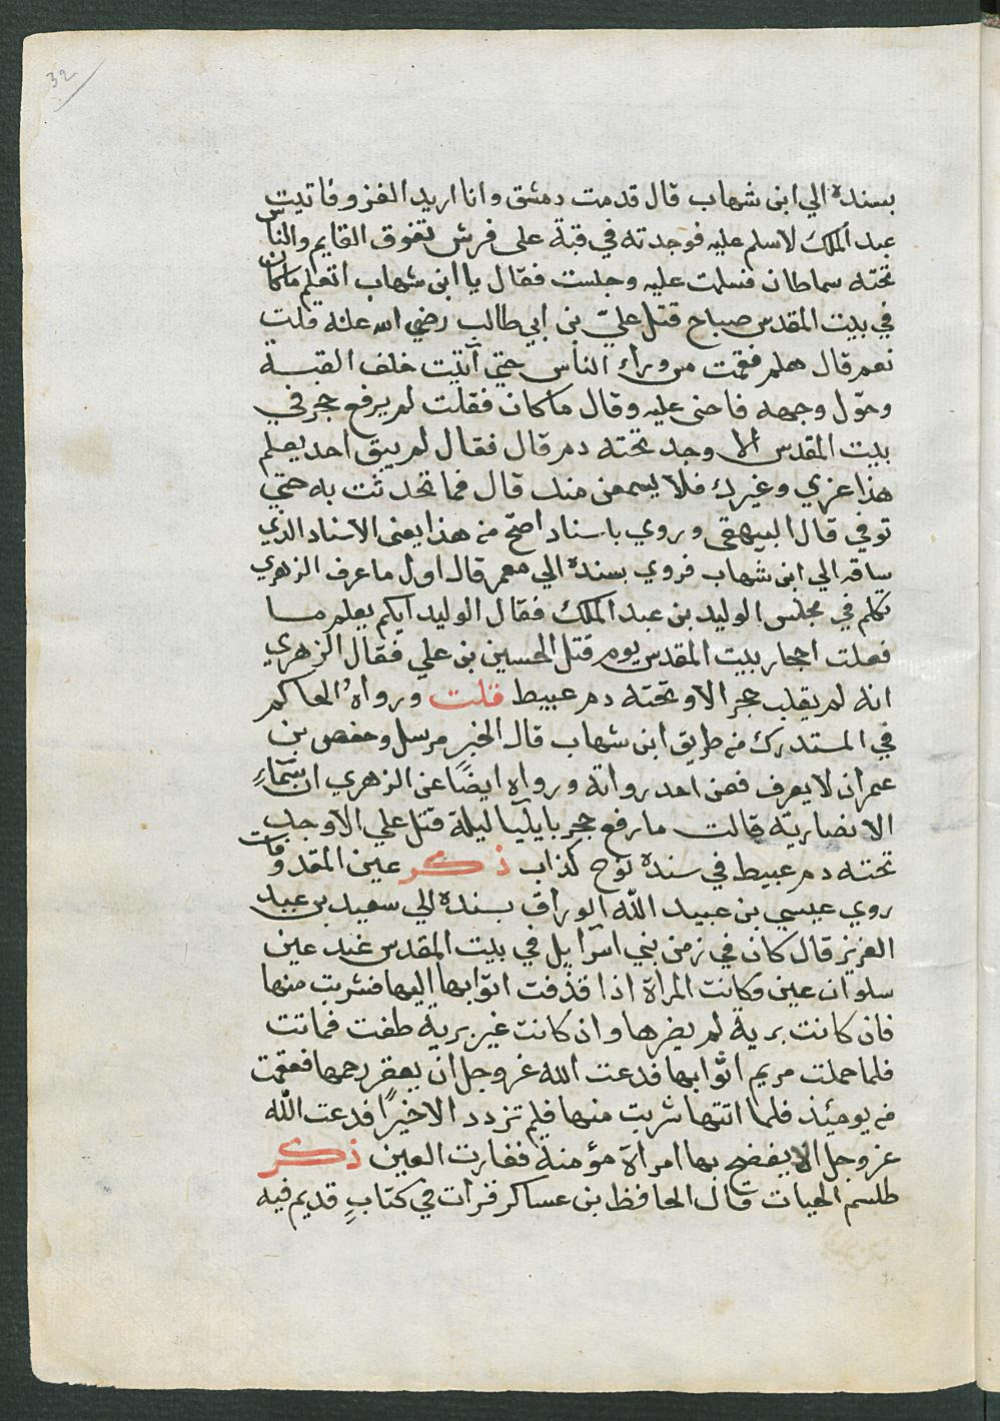 32
بسنده الي ابن شهاب قال قدمت دمشق وانا اريد الغزو فاتيت
عبد الملك لاسلم عليه فوجدته في قبة على فرش تفوق القايم والناس
تحته سماطان فسلمت عليه وجلست فقال يا ابن شهاب اتعلم ماكان
في بيت المقدس صباح قتل عليّ بن ابي طالب رضي الله عنه قلت
نعم قال هلم فقمت من وراء الناس حتي آتيت خلف القبة
وحوّل وجهه فاحنى عليه وقال ماكان فقلت لم يرفع حجر في
بيت المقدس الا وجد تحته دم قال فقال لم يبق احد يعلم
هذا غيري وغيرك فلا يسمعن منك قال فما تحدثت به حتي
توفي قال البيهقي وروي باسناد اصح من هذا يعني الاسناد الذي
ساقه الي ابن شهاب فروي بسنده الي معمر قال اول ما عرف الزهري
تكلم في مجلس الوليد بن عبد الملك فقال الوليد ايكم يعلم ما
فعلت احجار بيت المقدس يوم قتل الحسين بن علي فقال الزهري
انه لم يقلب حجر الا وتحته دم عبيط قلت ورواه الحاكم
في المستدرك من طريق ابن شهاب قال الخبر مرسل وحفص بن
عمران لا يعرف فمن احد رواته ورواه ايضًا عن الزهري ان سَمَاءِ
الانصارية قالت ما رفع حجر بايليا ليلة قتل علي الا وجد
تحته دم عبيط في سنده نوح كذاب ذكر عين المقدوفات
روي عيسي بن عبيد الله الوراق بسنده الي سعيد بن عبد
العزيز قال كان في زمن بني اسرايل في بيت المقدس عند عين
سلوان عين وكانت المراة اذا قذفت اتوا بها اليها فشربت منها
فان كانت برية لم يضرها وان كانت غير برية طفت فماتت
فلما حملت مريم اتوا بها فدعت الله عز وجل ان يعقر رحمها فعقمت
من يومئذ فلما اتتها شربت منها فلم تزدد الا خيرًا فدعت الله
عز وجل الا يفضح بها امراة مؤمنة فغارت العين ذكر
طلسم الحيات قال الحافظ بن عساكر قرات في كتابٍ قديم فيه